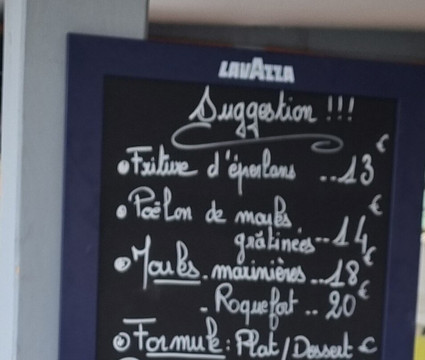 LAVAZZA
Suggestion !!!
• Friture d'éperlans ..13€
• Poëlon de moules
gratinées--14€
• Moules - marinières ..18€
- Roquefort .. 20€
• Formule : Plat / Dessert €